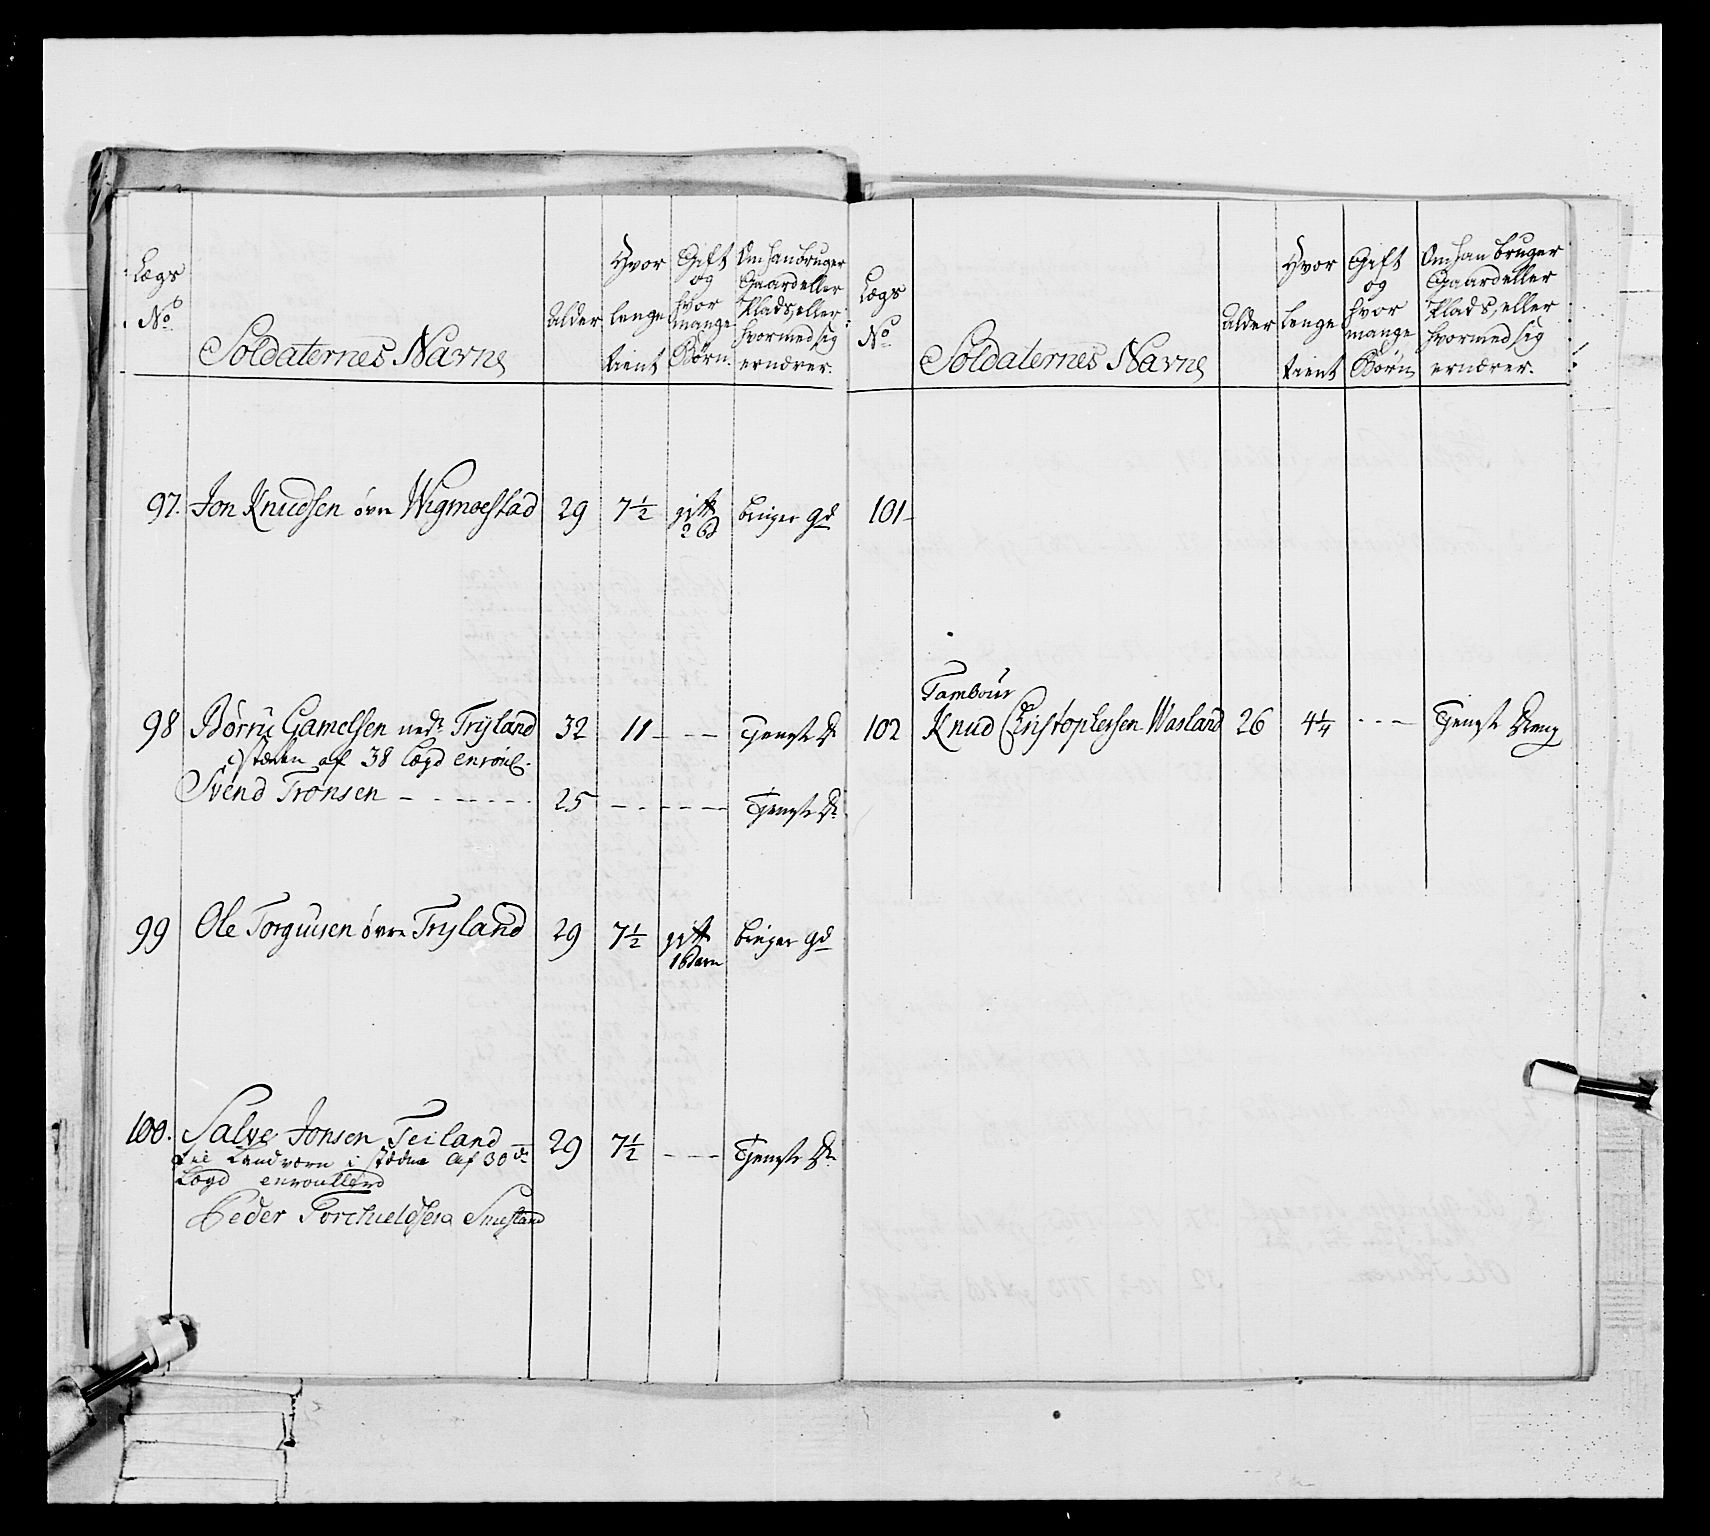 Lægs
No
Soldaternes Navne
Alder
Hvor
lenge
tient
Gift
og
hvor
mange
Børn.
Om han bruger
Gaard eller
Plads, eller
hvormed sig
ernærer.
97. Jon Knudsen øvre Wigmoestad 29 7½ gift bruger gd
2 b
98 Børru Gamelsen nedr Tryland 32 11 - - - Tjenste Dr
i stæden af 38 Lægd enroul.
Svend Tronsen - - - - - - 25 - - - - - Tjenste Dr
99 Ole Torguusen øvre Tryland 29 7½ gift bruger gd
1 barn
100. Salve Jonsen Teiland - 29 7½ - - - Tjenste Dr
til Landværn i stæden af 30de
Lægd enroullerd
Peder Torchieldsen Smestand
Lægs
No
Soldaternes Navne
Alder
Hvor
lenge
tient
Gift
og
hvor
mange
Børn
Om han bruger
Gaard eller
Plads, eller
hvormed sig
ernærer.
101-
Tambour
102 Knud Christophersen Wasland 26 4¼ - - - Tjenste Dreng